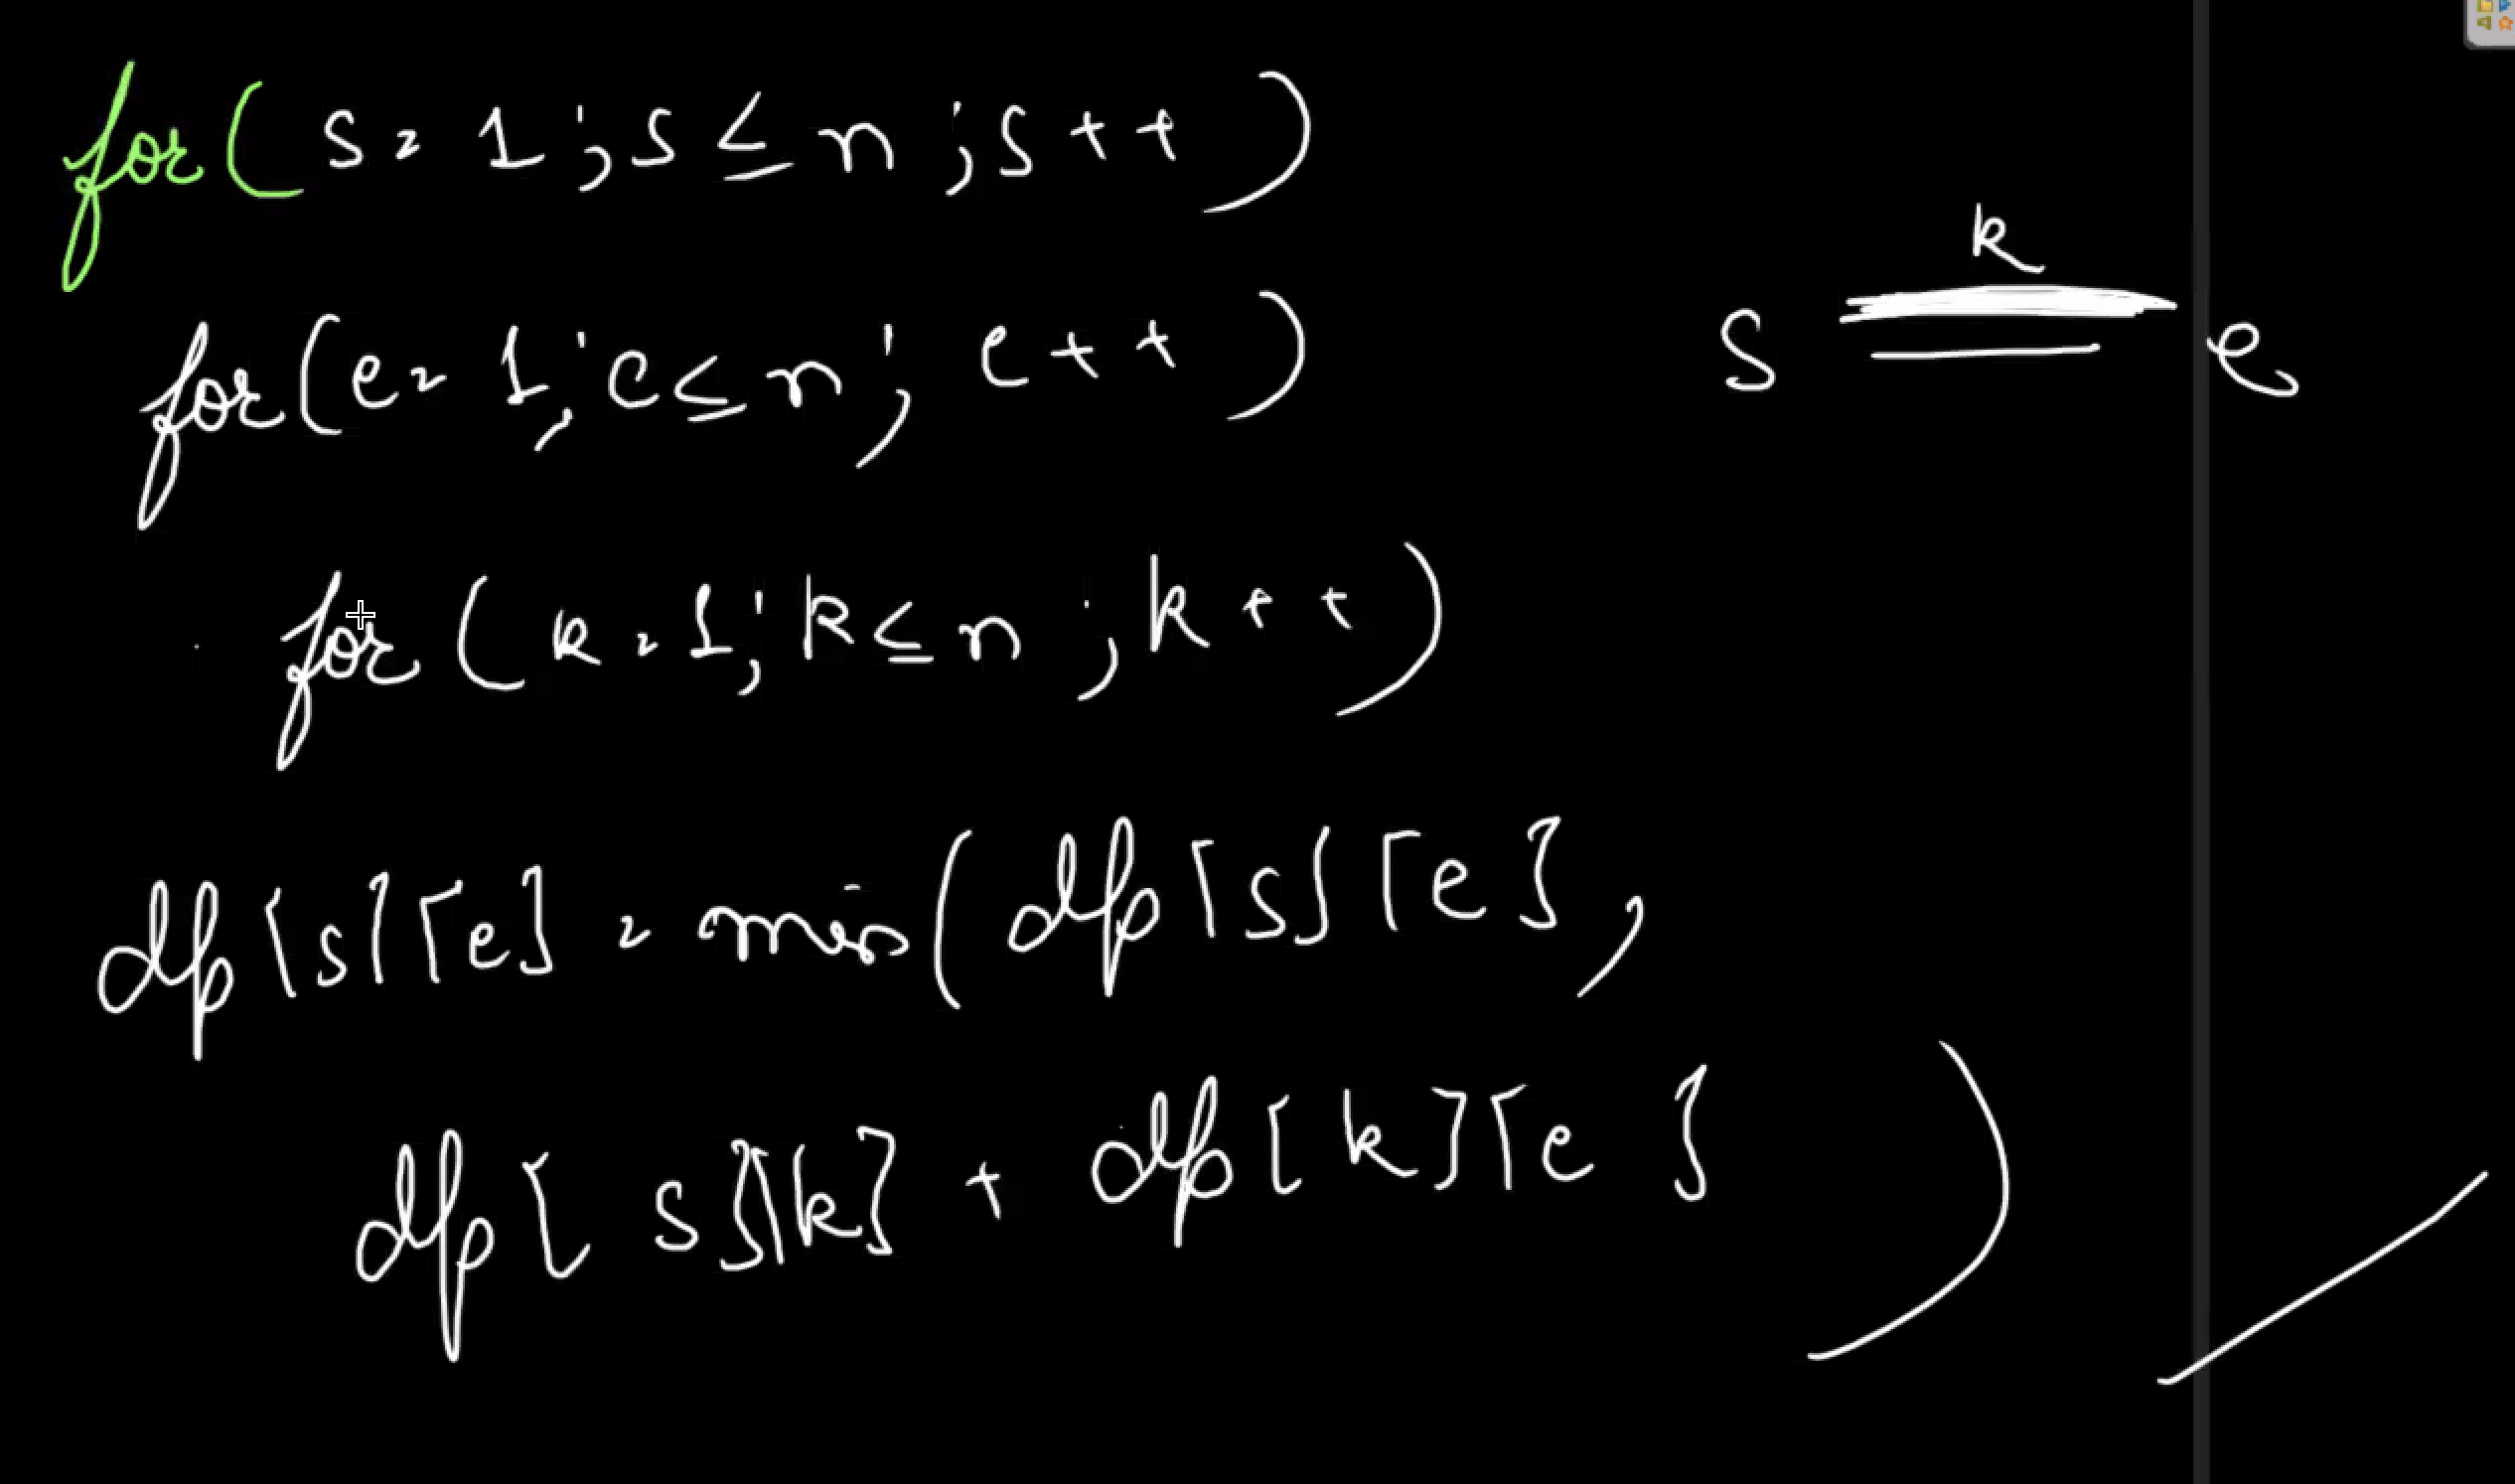 for( s = 1 ; s ≤ n ; s++ )
k
s e
for( e = 1 ; e ≤ n ; e++ )
for ( k = 1 ; k ≤ n ; k++ )
dp[s][e] = min( dp[s][e] ,
dp[s][k] + dp[k][e] )